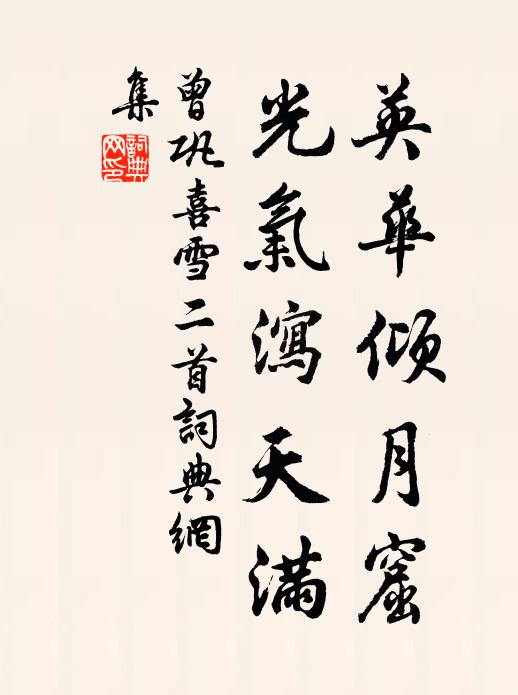 英華傾月窟
光氣瀉天滿
曾巩喜雪二首詞典網
集
詞典网印